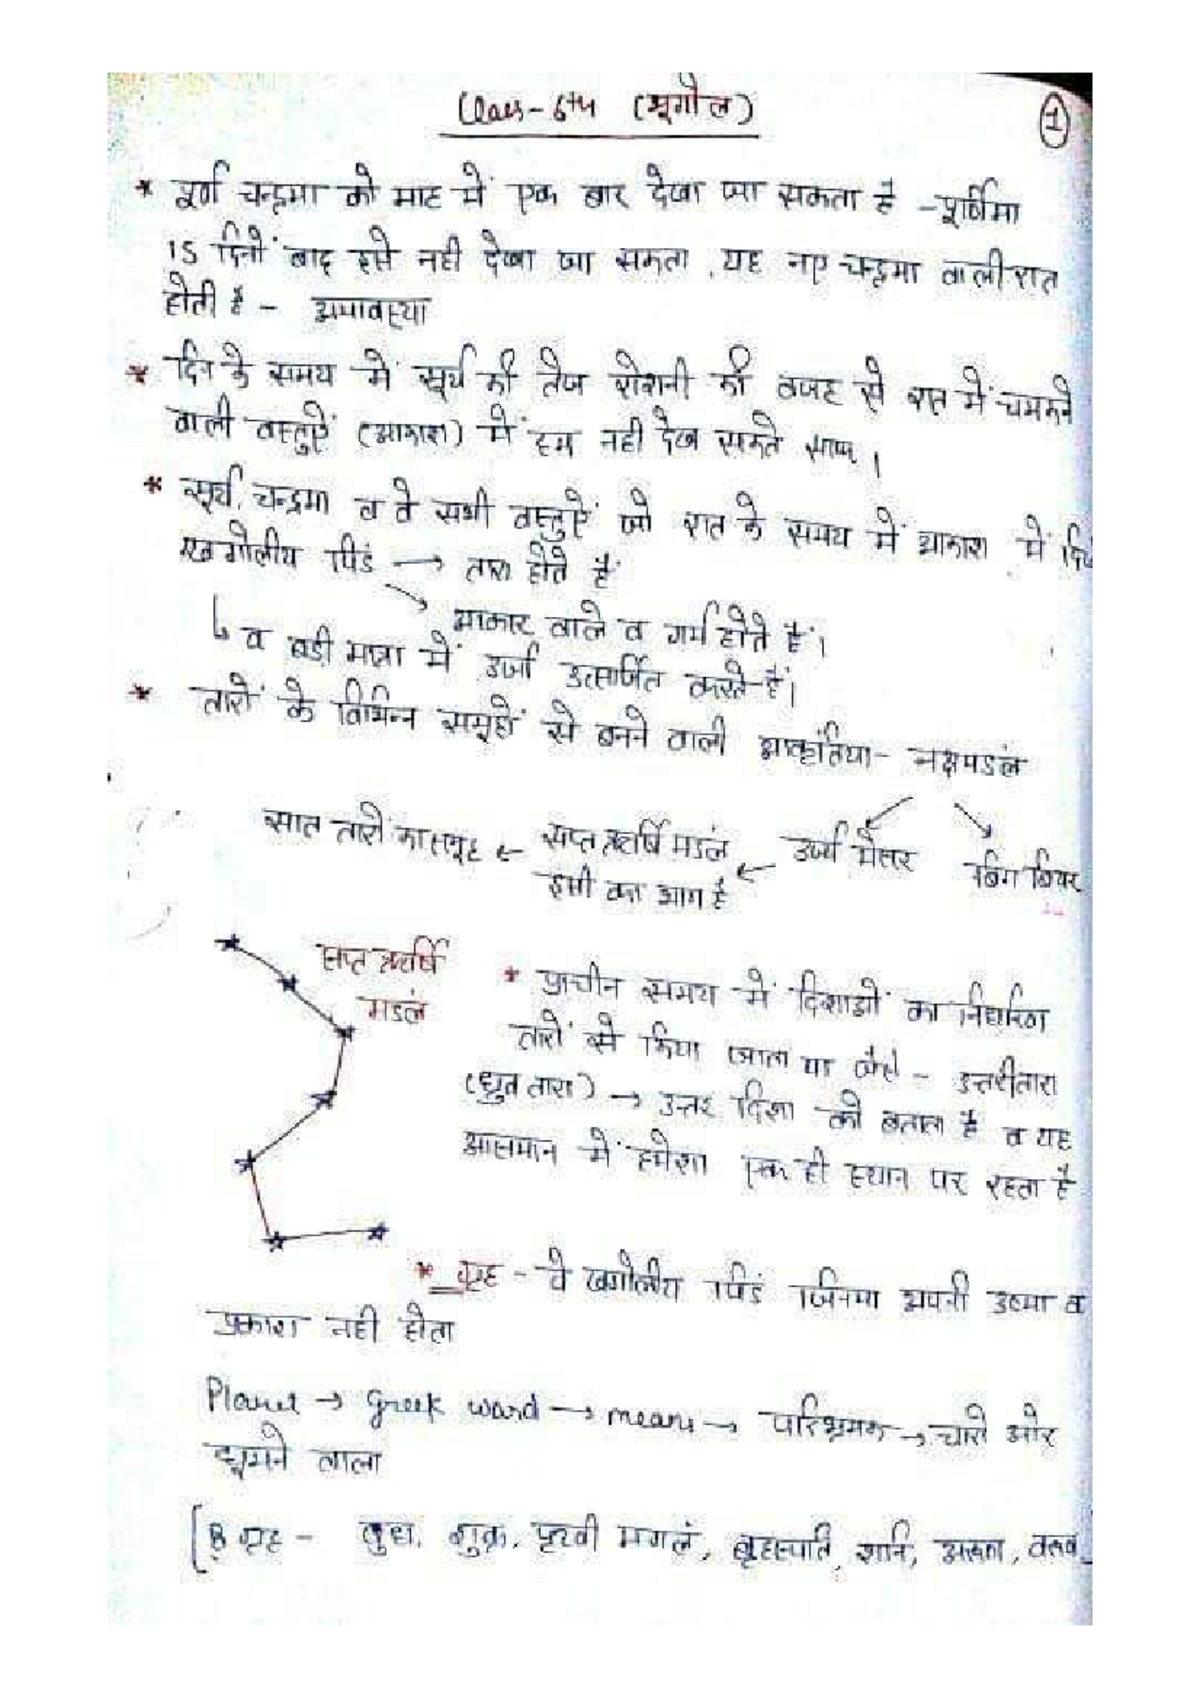 Class-6th (भूगोल)
1
* पूर्ण चन्द्रमा को माह में एक बार देखा जा सकता है - पूर्णिमा
15 दिनों बाद इसे नही देखा जा सकता, यह नए चन्द्रमा वाली रात
होती है - अमावस्या
* दिन के समय में सूर्य की तेज रोशनी की वजह से रात में चमकने
वाली वस्तुऐं (आकाश) में हम नही देख सकते साफ।
* सूर्य, चन्द्रमा व वे सभी वस्तुऐं जो रात के समय में आकाश में
खगोलीय पिंड → तारा होते हैं
आकार वाले व गर्म होते हैं।
व बडी मात्रा में उर्जा उत्सर्जित करते हैं।
* तारों के विभिन्न समूहों से बनने वाली आकृतिया - नक्षमडलं
सात तारो का समूह ← सप्त ऋर्षि मडलं ← उर्जा मेजर
बिग बियर
इसी का भाग है
सप्त ऋर्षि
मडलं
* प्राचीन समय में दिशाओं का निर्धारण
तारों से किया जाता था जैसे - उत्तरीतारा
(ध्रुव तारा) → उत्तर दिशा को बताता है व यह
आसमान में हमेशा एक ही स्थान पर रहता है
* ग्रह - वे खगोलीय पिंड जिनमा अपनी उष्मा व
प्रकाश नही होता
Planet → Greek word → means → परिभ्रमक → चारो ओर
घूमने वाला
[8 ग्रह - बुध, शुक्र, पृथ्वी मगलं, बृहस्पति, शनि, अरूण, वरूण]